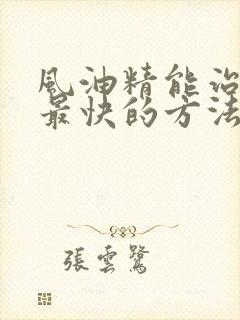 風油精能治
最快的方法
張雲鷺